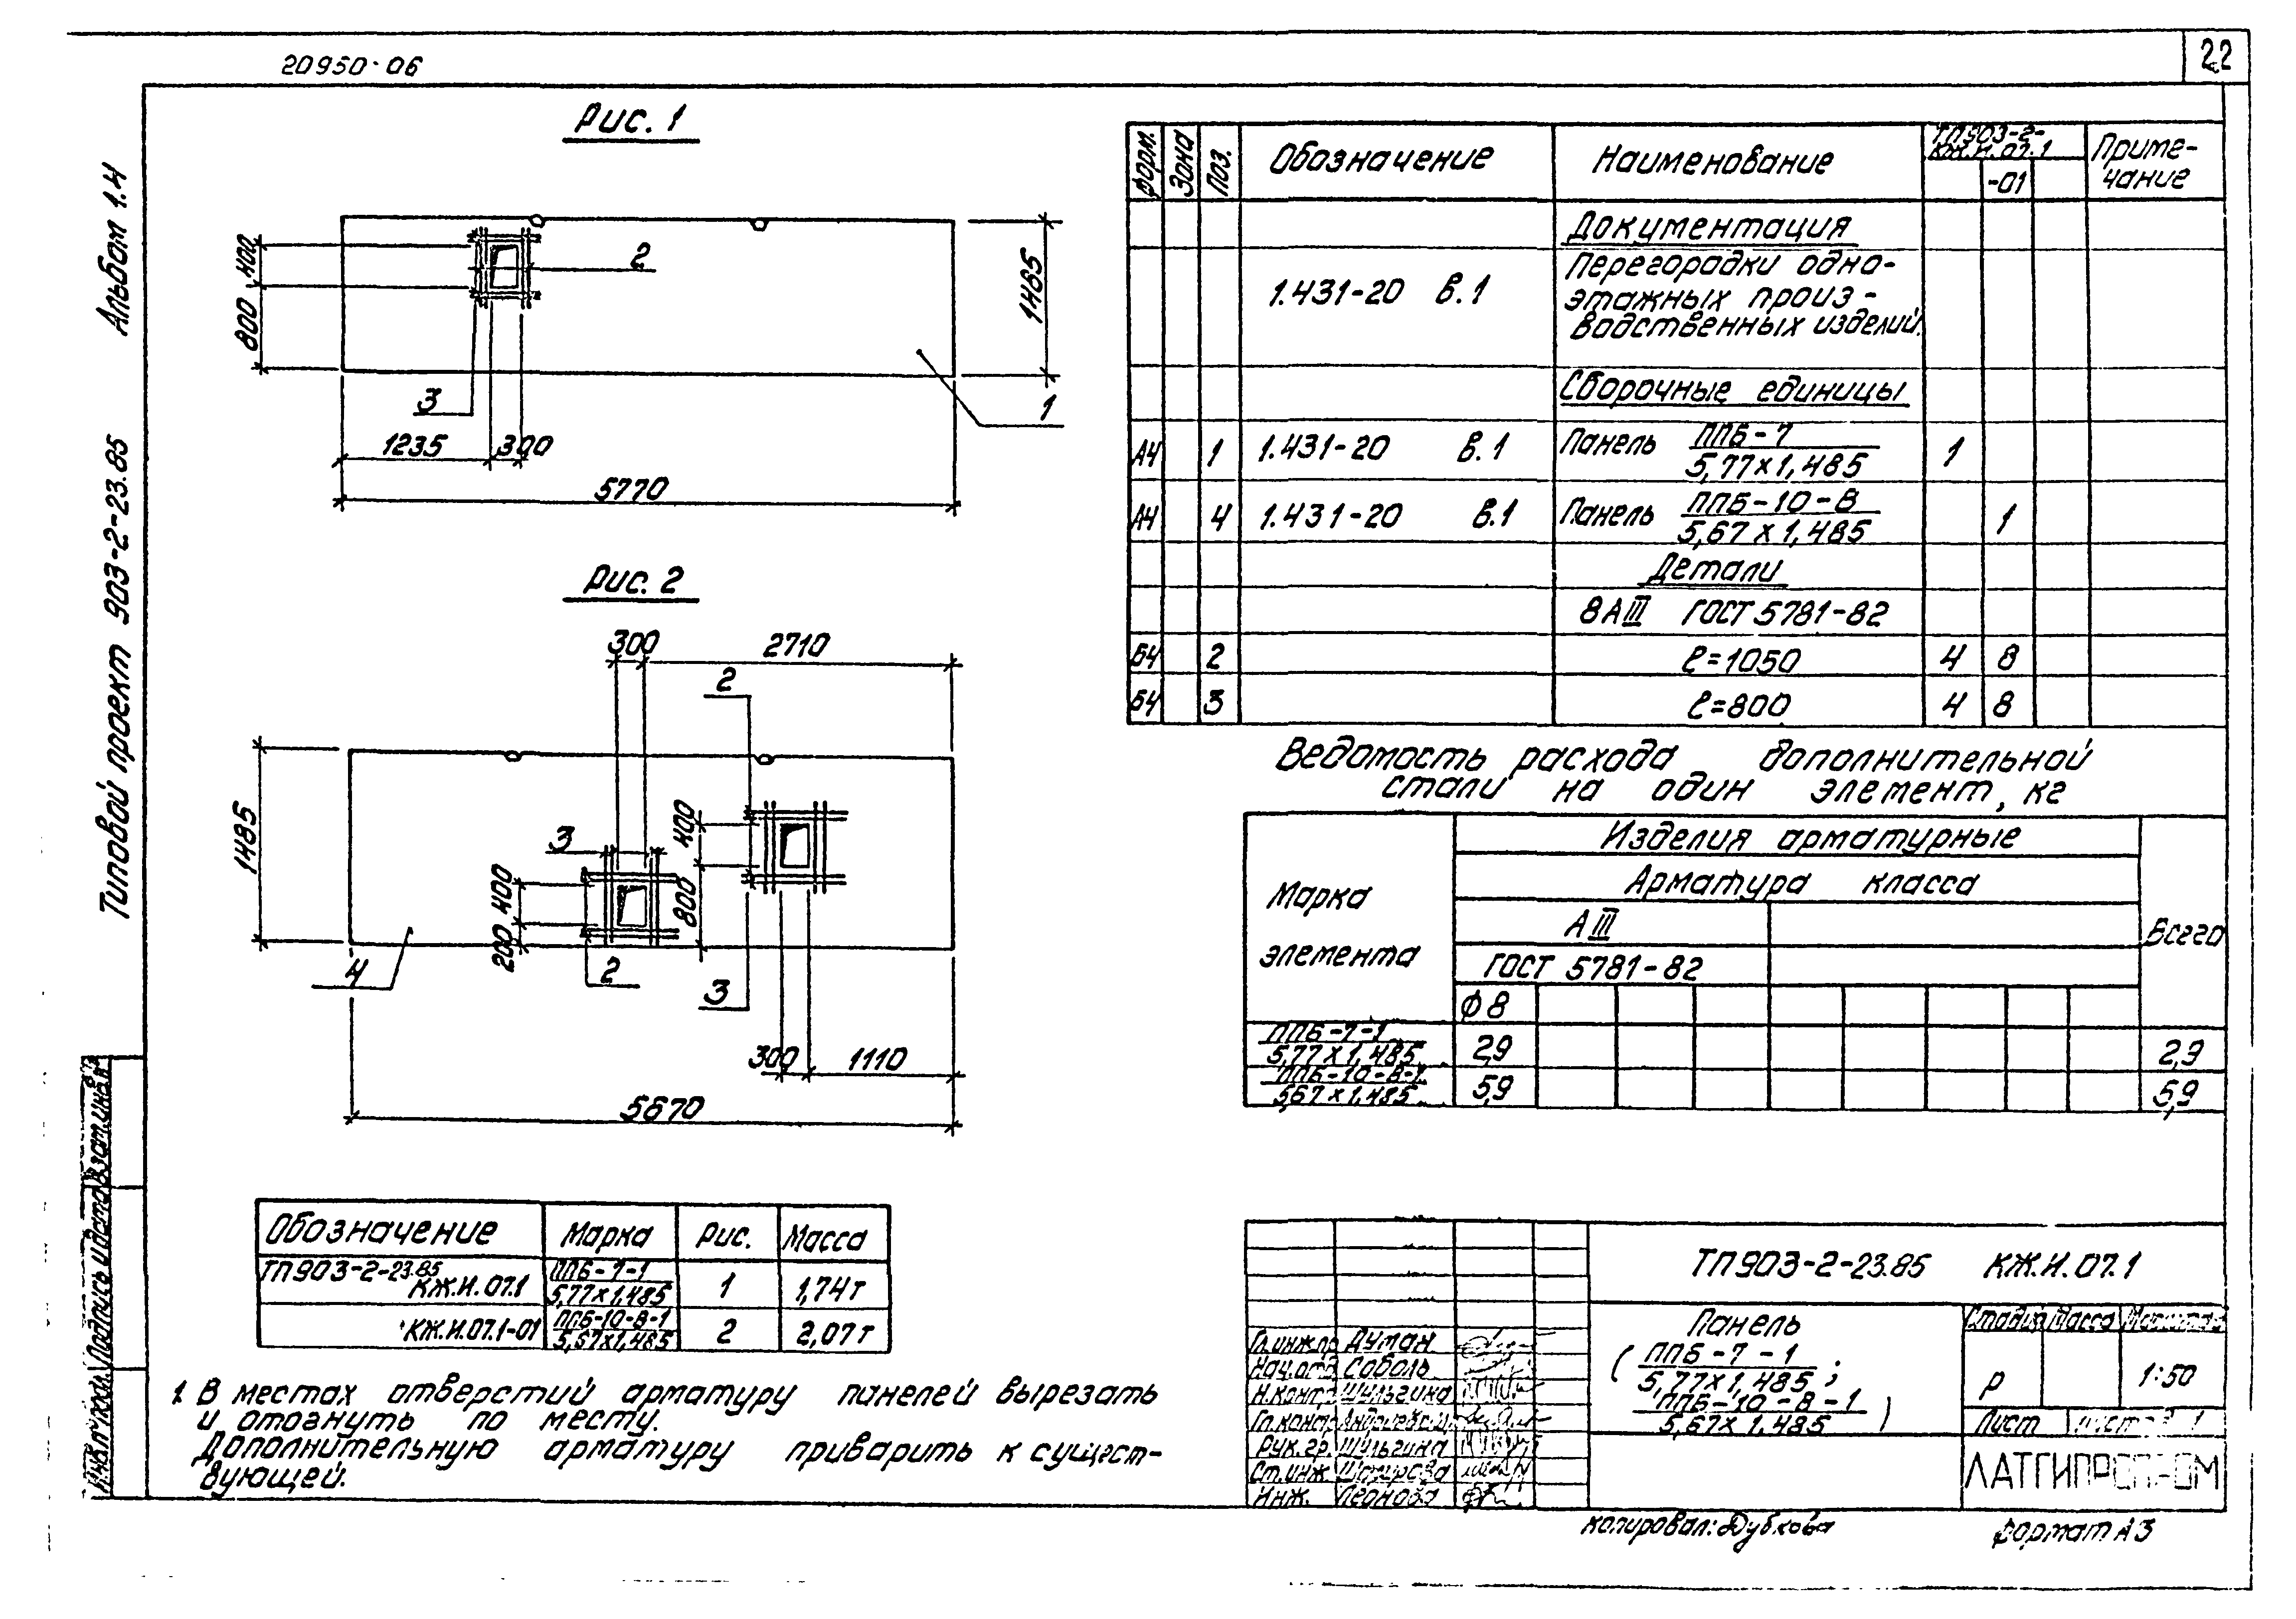 22
20950-06
Альбом 1.4
Типовой проект 903-2-23.85
Рис. 1
400
800
2
3
1
1485
1235
300
5770
Рис. 2
300
2710
2
1485
3
400
200
400
800
4
2
3
300
1110
5670
Форм.
Зона
Поз.
Обозначение
Наименование
ТП903-2-
КЖ.И.07.1
-01
Приме-
чание
Документация
1.431-20 В.1
Перегородки одно-
этажных произ-
водственных изделий.
Сборочные единицы
А4 1 1.431-20 В.1 Панель ППБ-7 1
5,77х1,485
А4 4 1.431-20 В.1 Панель ППБ-10-В 1
5,67х1,485
Детали
8АIII ГОСТ 5781-82
Б4 2 ℓ=1050 4 8
Б4 3 ℓ=800 4 8
Ведомость расхода дополнительной
стали на один элемент, кг
Марка
элемента
Изделия арматурные
Арматура класса
АIII
ГОСТ 5781-82
ϕ8
Всего
ППБ-7-1
5,77х1,485 2,9 2,9
ППБ-10-В-1
5,67х1,485 5,9 5,9
Обозначение Марка Рис. Масса
ТП903-2-23.85
КЖ.И.07.1
ППБ-7-1
5,77х1,485
1 1,74т
КЖ.И.07.1-01
ППБ-10-В-1
5,67х1,485
2 2,07т
1. В местах отверстий арматуру панелей вырезать
и отогнуть по месту.
Дополнительную арматуру приварить к сущест-
вующей.
ТП903-2-23.85 КЖ.И.07.1
Гл.инж.пр. Думан
Нач.отд. Соболь
Н.контр. Шульгина
Гл.констр.
Рук.гр. Шульгина
Ст.инж.
Инж. Леонова
Панель
(ППБ-7-1
5,77х1,485;
ППБ-10-В-1
5,67х1,485)
Стадия Масса Масштаб
Р 1:50
Лист Листов 1
ЛАТГИПРОПРОМ
Инв.№ подл. Подпись и дата Взам.инв.№
Копировал: Дубкова
Формат А3